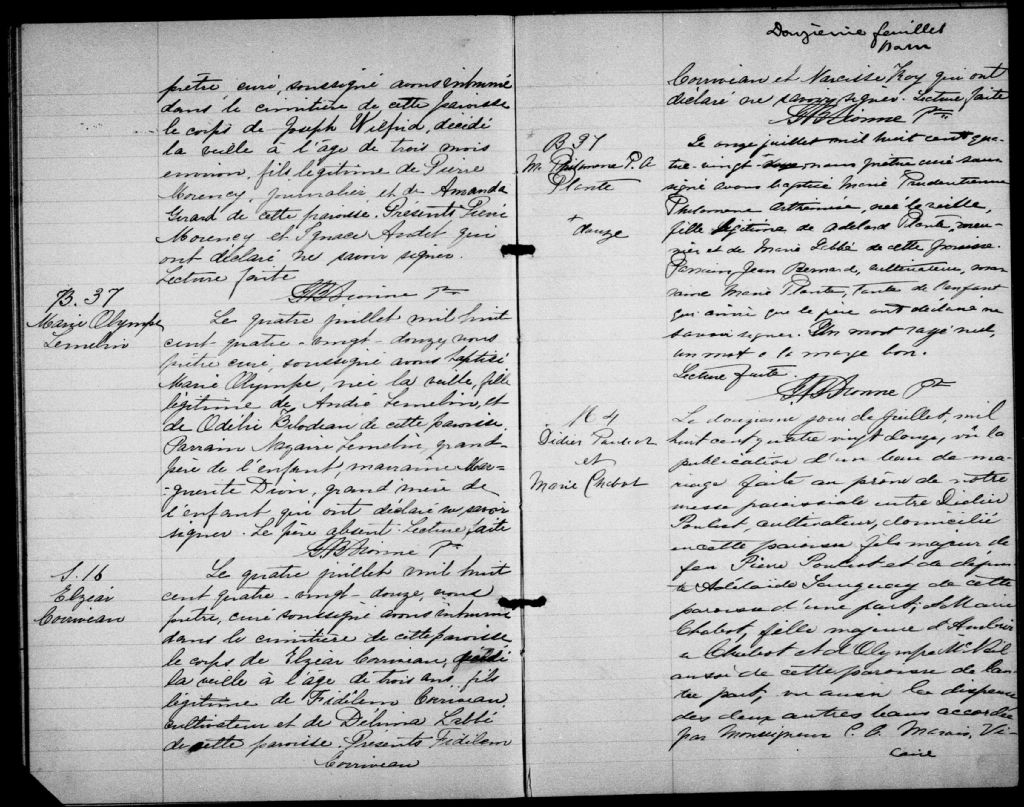 prêtre, curé, soussigné avons inhumé
dans le cimetière de cette paroisse
le corps de Joseph Wilfrid, décédé
la veille à l'âge de trois mois
environ, fils légitime de Pierre
Morency, journalier, et de Amanda
Gerard de cette paroisse. Présents Pierre
Morency et Ignace Audet qui
ont déclaré ne savoir signer.
Lecture faite
B. 37
Marie Olympe
Lemelin
Le quatre juillet mil huit
cent-quatre-vingt-douze, nous
prêtre curé, soussigné avons baptisé
Marie Olympe, née la veille, fille
légitime de André Lemelin, et
de Odélie Bilodeau de cette paroisse.
Parrain Nazaire Lemelin, grand-
père de l'enfant, marraine Mar-
guerite Dion, grand'mère de
l'enfant qui ont déclaré ne savoir
signer. Le père absent. Lecture faite
S. 16
Elzear
Corriveau
Le quatre juillet mil huit
cent quatre-vingt-douze, nous
prêtre, curé soussigné avons inhumé
dans le cimetière de cette paroisse
le corps de Elzéar Corriveau,
la veille à l'âge de trois ans, fils
légitime de Fidélem Corriveau,
cultivateur et de Délima Labbé
de cette paroisse. Présents Fidélem
Corriveau
Douzième feuillet
Corriveau et Narcisse Roy qui ont
déclaré ne savoir signer. Lecture faite
B 37
M. Philomene P. A
Plante
+
douze
Le onze juillet mil huit cent qua-
tre-vingt nous prêtre curé sous
signé avons baptisé Marie Prudentienne
Philomene Arthemise, née la veille,
fille légitime de Adélard Plante, meu-
nier et de Marie Labbé de cette paroisse.
Parrain Jean Bernard, cultivateur, mar-
raine Marie Plante, tante de l'enfant
qui ainsi que le père ont déclaré ne
savoir signer. Un mot rayé nul,
un mot à la marge bon.
Lecture faite.
M 4
Didier Pouliot
et
Marie Chabot
Le douzieme jour de Juillet, mil
huit cent quatre vingt douze, vu la
publication d'un banc de ma-
riage faite au prône de notre
messe paroissiale entre Didier
Pouliot, cultivateur, domicilié
en cette paroisse fils majeur de
feu Pierre Pouliot et de
Adélaide de cette
paroisse d'une part; et Marie
Chabot, fille majeure d'
Chabot et d'Olympe
aussi de cette paroisse de l'au-
tre part; vu aussi la dispense
des deux autres bans accordée
par Monseigneur C. A. Marois, Vi-
caire